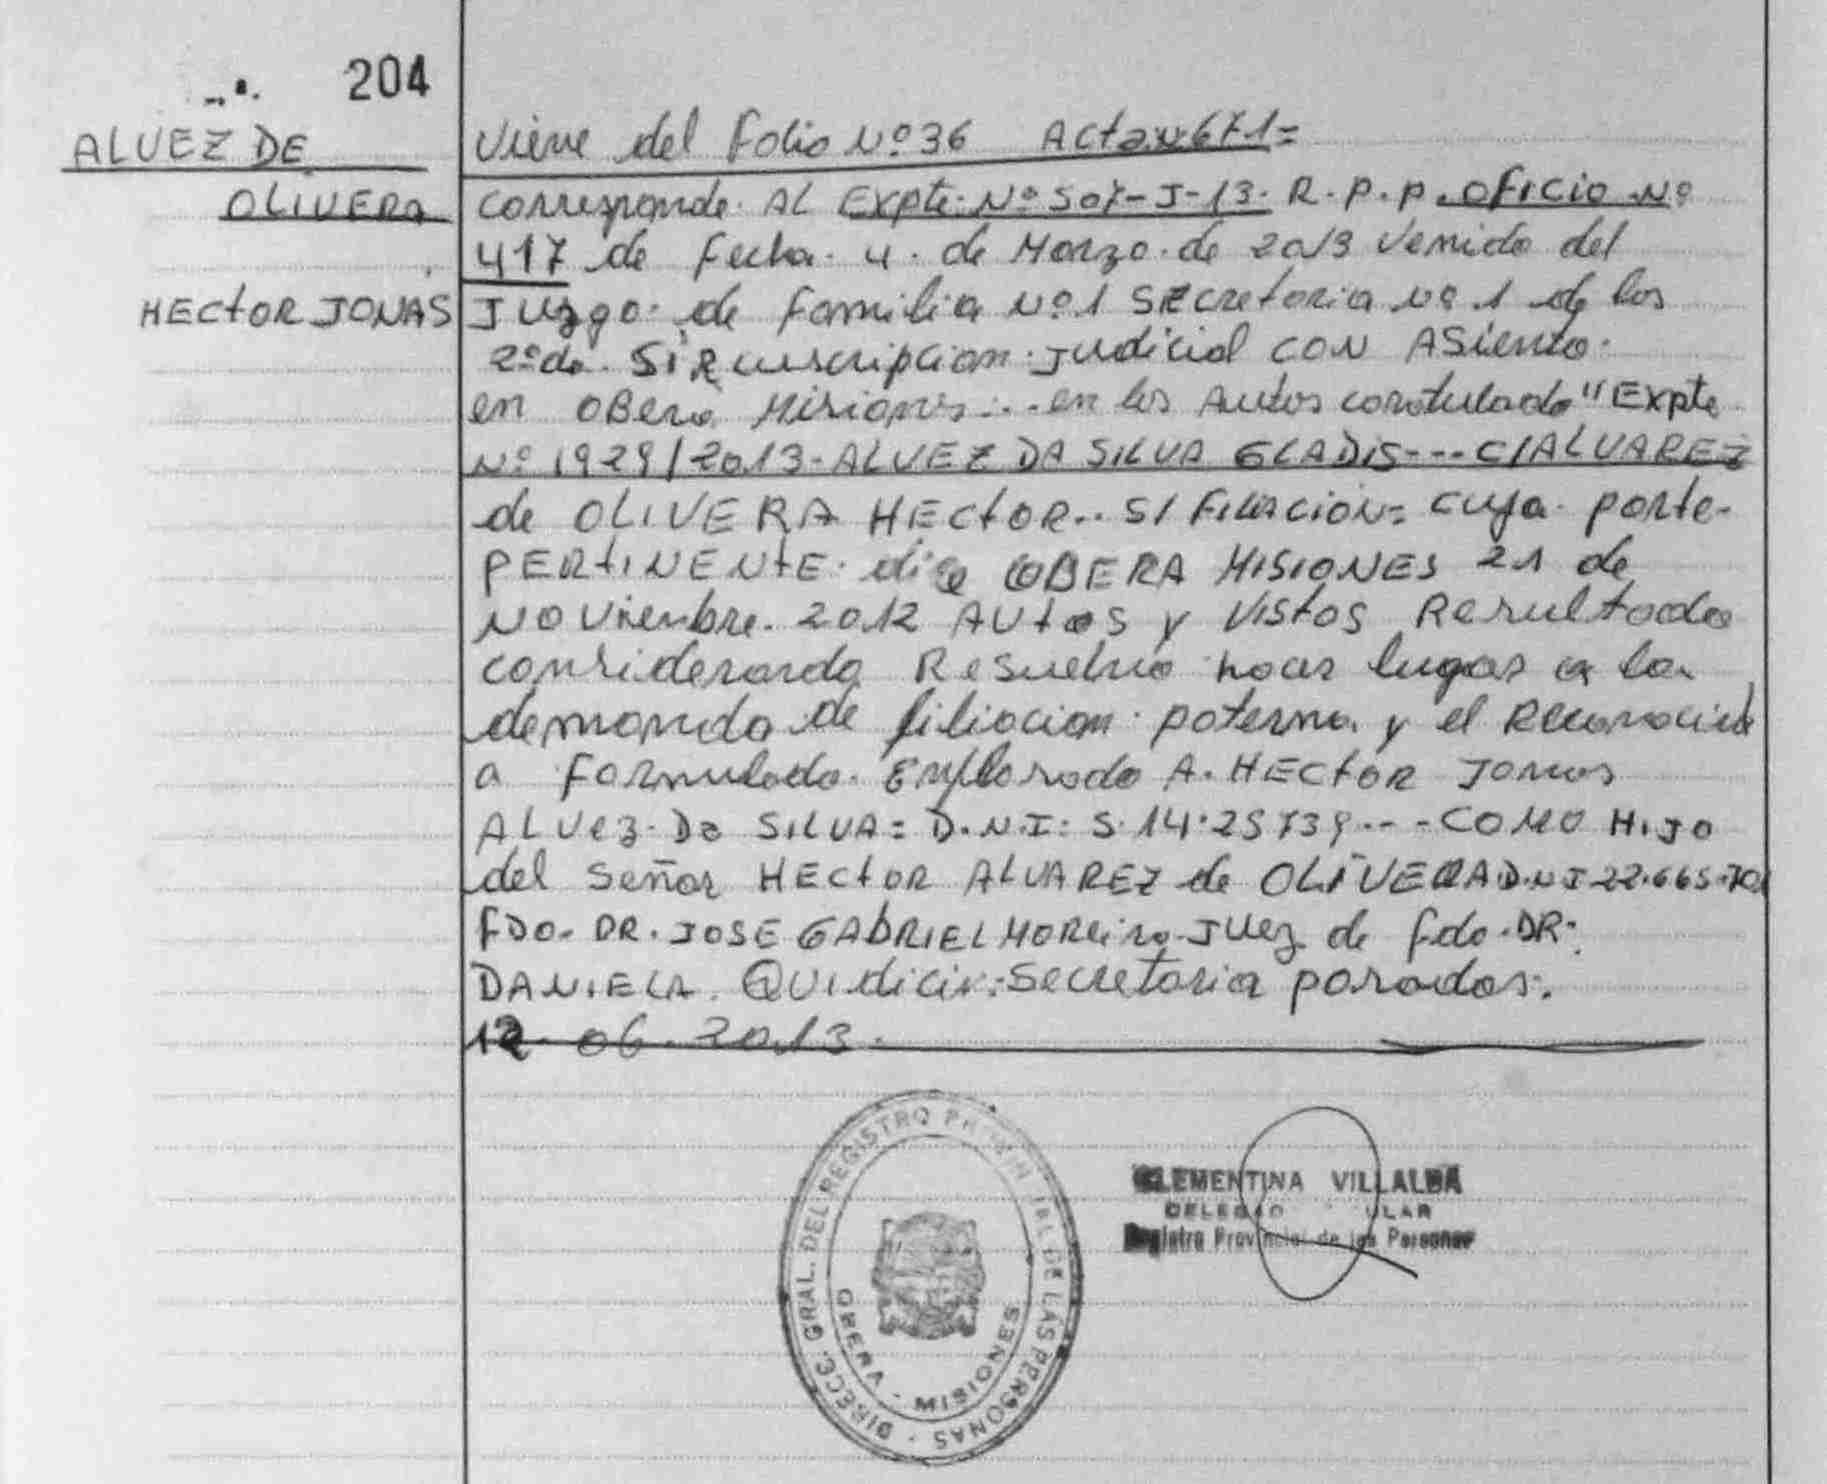 204
ALVEZ DE
OLIVERA
HECTOR JONAS
Viene del Folio Nº 36 Acta Nº 671=
corresponde AL Expte. Nº 507-J-13. R.P.P. oficio Nº
417 de Fecha 4. de Marzo de 2013 venido del
Juzgo de Familia Nº 1 Secretoria Nº 1 de los
2º da. SIRcunscripcion Judicial CON ASiento.
en OBera Misiones... en los Autos caratulado "Expte
Nº 1929/2013-ALVEZ DA SILVA GLADIS--- C/ALVAREZ
de OLIVERA HECTOR.. S/ Filiacion= cuya parte-
PERTINENTE dice OBERA MISIONES 21 de
Noviembre. 2012 AUtos y Vistos Resultado
considerando Resuelvo hacer lugar a la
demanda de filiacion paterna y el
a Formulado. A. HECTOR Jonas
ALVez Da SILVA= D.N.I: --- COMO HIJO
del Señor HECTOR ALVAREZ de OLIVERA D.N.I 22.665.70
FDO. DR. JOSE GABRIEL Moreira Juez de fdo. DR:
DANIELA. Secretaria
12 06. 2013.
DIRECC. GRAL. DEL REGISTRO PROVINCIAL DE LAS PERSONAS
OBERA - MISIONES
CLEMENTINA VILLALBA
Registro Provincial de las Personas